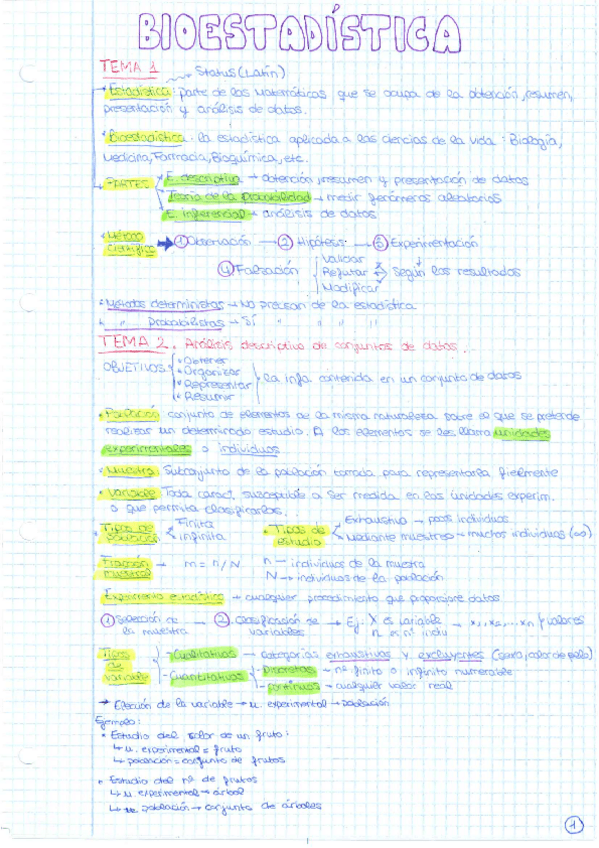 BIOESTADÍSTICA
TEMA 1
Status (Latín)
Estadística: parte de las Matemáticas que se ocupa de la obtención, resumen,
presentación y análisis de datos.
Bioestadística: la estadística aplicada a las ciencias de la vida: Biología,
Medicina, Farmacia, Bioquímica, etc.
PARTES E. descriptiva → obtención, resumen y presentación de datos
Teoría de la probabilidad → medir fenómenos aleatorios
E. inferencial → análisis de datos
Método
Científico → ① Observación → ② Hipótesis → ③ Experimentación
④ Falsación
Validar
Refutar → según los resultados
Modificar
• Métodos deterministas → No precisan de la estadística
" probabilistas → SÍ " " " "
TEMA 2. Análisis descriptivo de conjuntos de datos.
OBJETIVOS
• Obtener
• Organizar
• Representar
• Resumir
la info. contenida en un conjunto de datos
• Población: conjunto de elementos de la misma naturaleza sobre el que se pretende
realizar un determinado estudio. A los elementos se les llama unidades
experimentales o individuos
• Muestra: Subconjunto de la población tomada para representarla fielmente
• Variable: Toda caract. susceptible a ser medida en las unidades experim.
o que permita clasificarlas.
• Tipos de población
Finita
infinita
• Tipos de estudio
Exhaustivo → pocos individuos
Mediante muestreo → muchos individuos (∞)
Fracción muestral → m = n/N
n → individuos de la muestra
N → individuos de la población
Experimento estadístico → cualquier procedimiento que proporcione datos
① Selección de la muestra → ② Clasificación de variables → Ej. X es variable
n es nº indiv → x₁, x₂, ... xn } valores
Tipos de variable
Cualitativas → categorías exhaustivas y excluyentes (sexo, color de pelo)
Cuantitativas
Discretas → nº finito o infinito numerable
continuas → cualquier valor real
→ Elección de la variable → u. experimental → población
Ejemplo:
• Estudio del color de un fruto:
↳ u. experimental = fruto
↳ población = conjunto de frutos
• Estudio del nº de frutos
↳ u. experimental → árbol
↳ población → conjunto de árboles
1